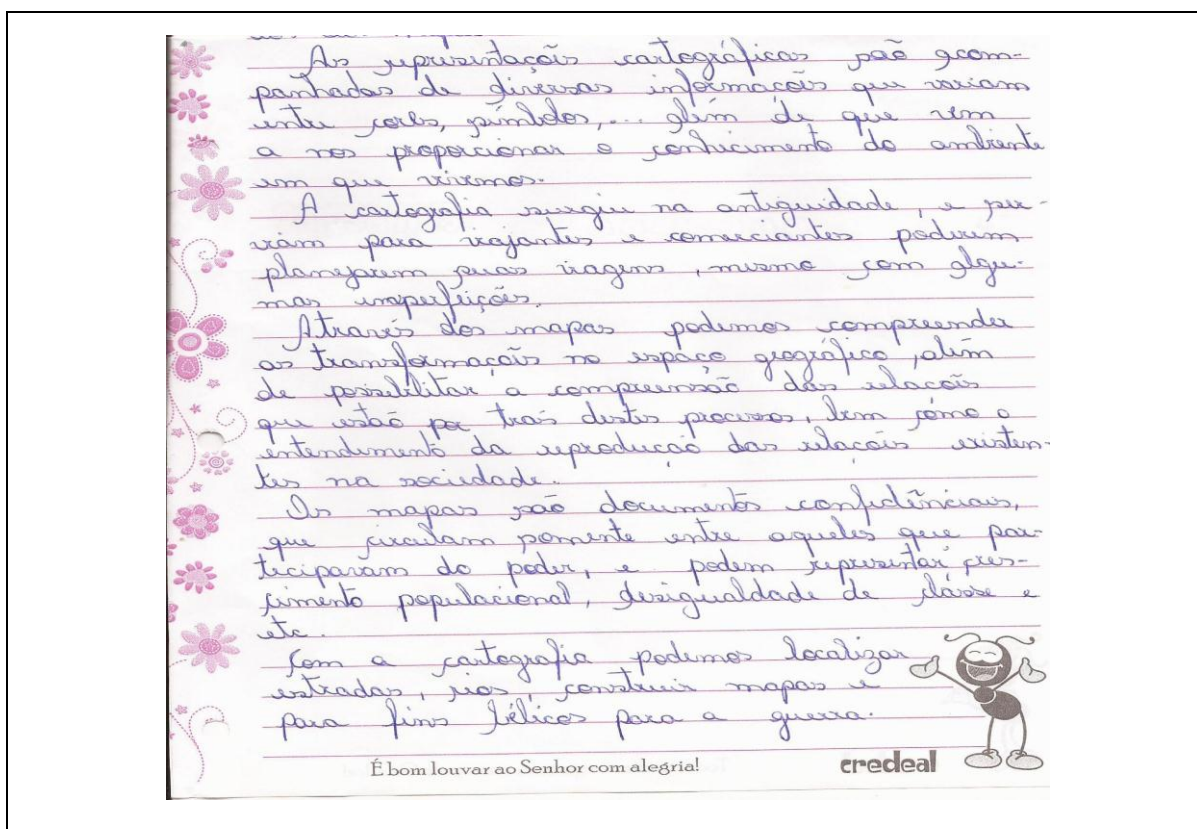 As representações cartográficas são acom-
panhadas de diversas informações que variam
entre cores, símbolos,... além de que vem
a nos proporcionar o conhecimento do ambiente
em que vivemos.
A cartografia surgiu na antiguidade, e ser-
viam para viajantes e comerciantes poderem
planejarem suas viagens, mesmo com algu-
mas imperfeições.
Através dos mapas podemos compreender
as transformações no espaço geográfico, além
de possibilitar a compreensão das relações
que estão por trás destes processos, bem como o
entendimento da reprodução das relações existen-
tes na sociedade.
Os mapas são documentos confidênciais,
que circulam somente entre aqueles que par-
ticiparam do poder, e podem representar cres-
cimento populacional, desigualdade de classe e
etc.
Com a cartografia podemos localizar
estradas, rios, construir mapas e
para fins bélicos para a guerra.
É bom louvar ao Senhor com alegria!
credeal